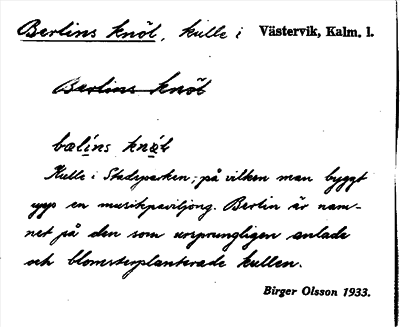 Berlins knöl, kulle i Västervik, Kalm. l.
Berlins knöl
bælíns knǿl
Kulle i Stadsparken; på vilken man byggt
upp en musikpaviljong. Berlin är nam-
net på den som ursprungligen anlade
och blomsterplanterade kullen.
Birger Olsson 1933.